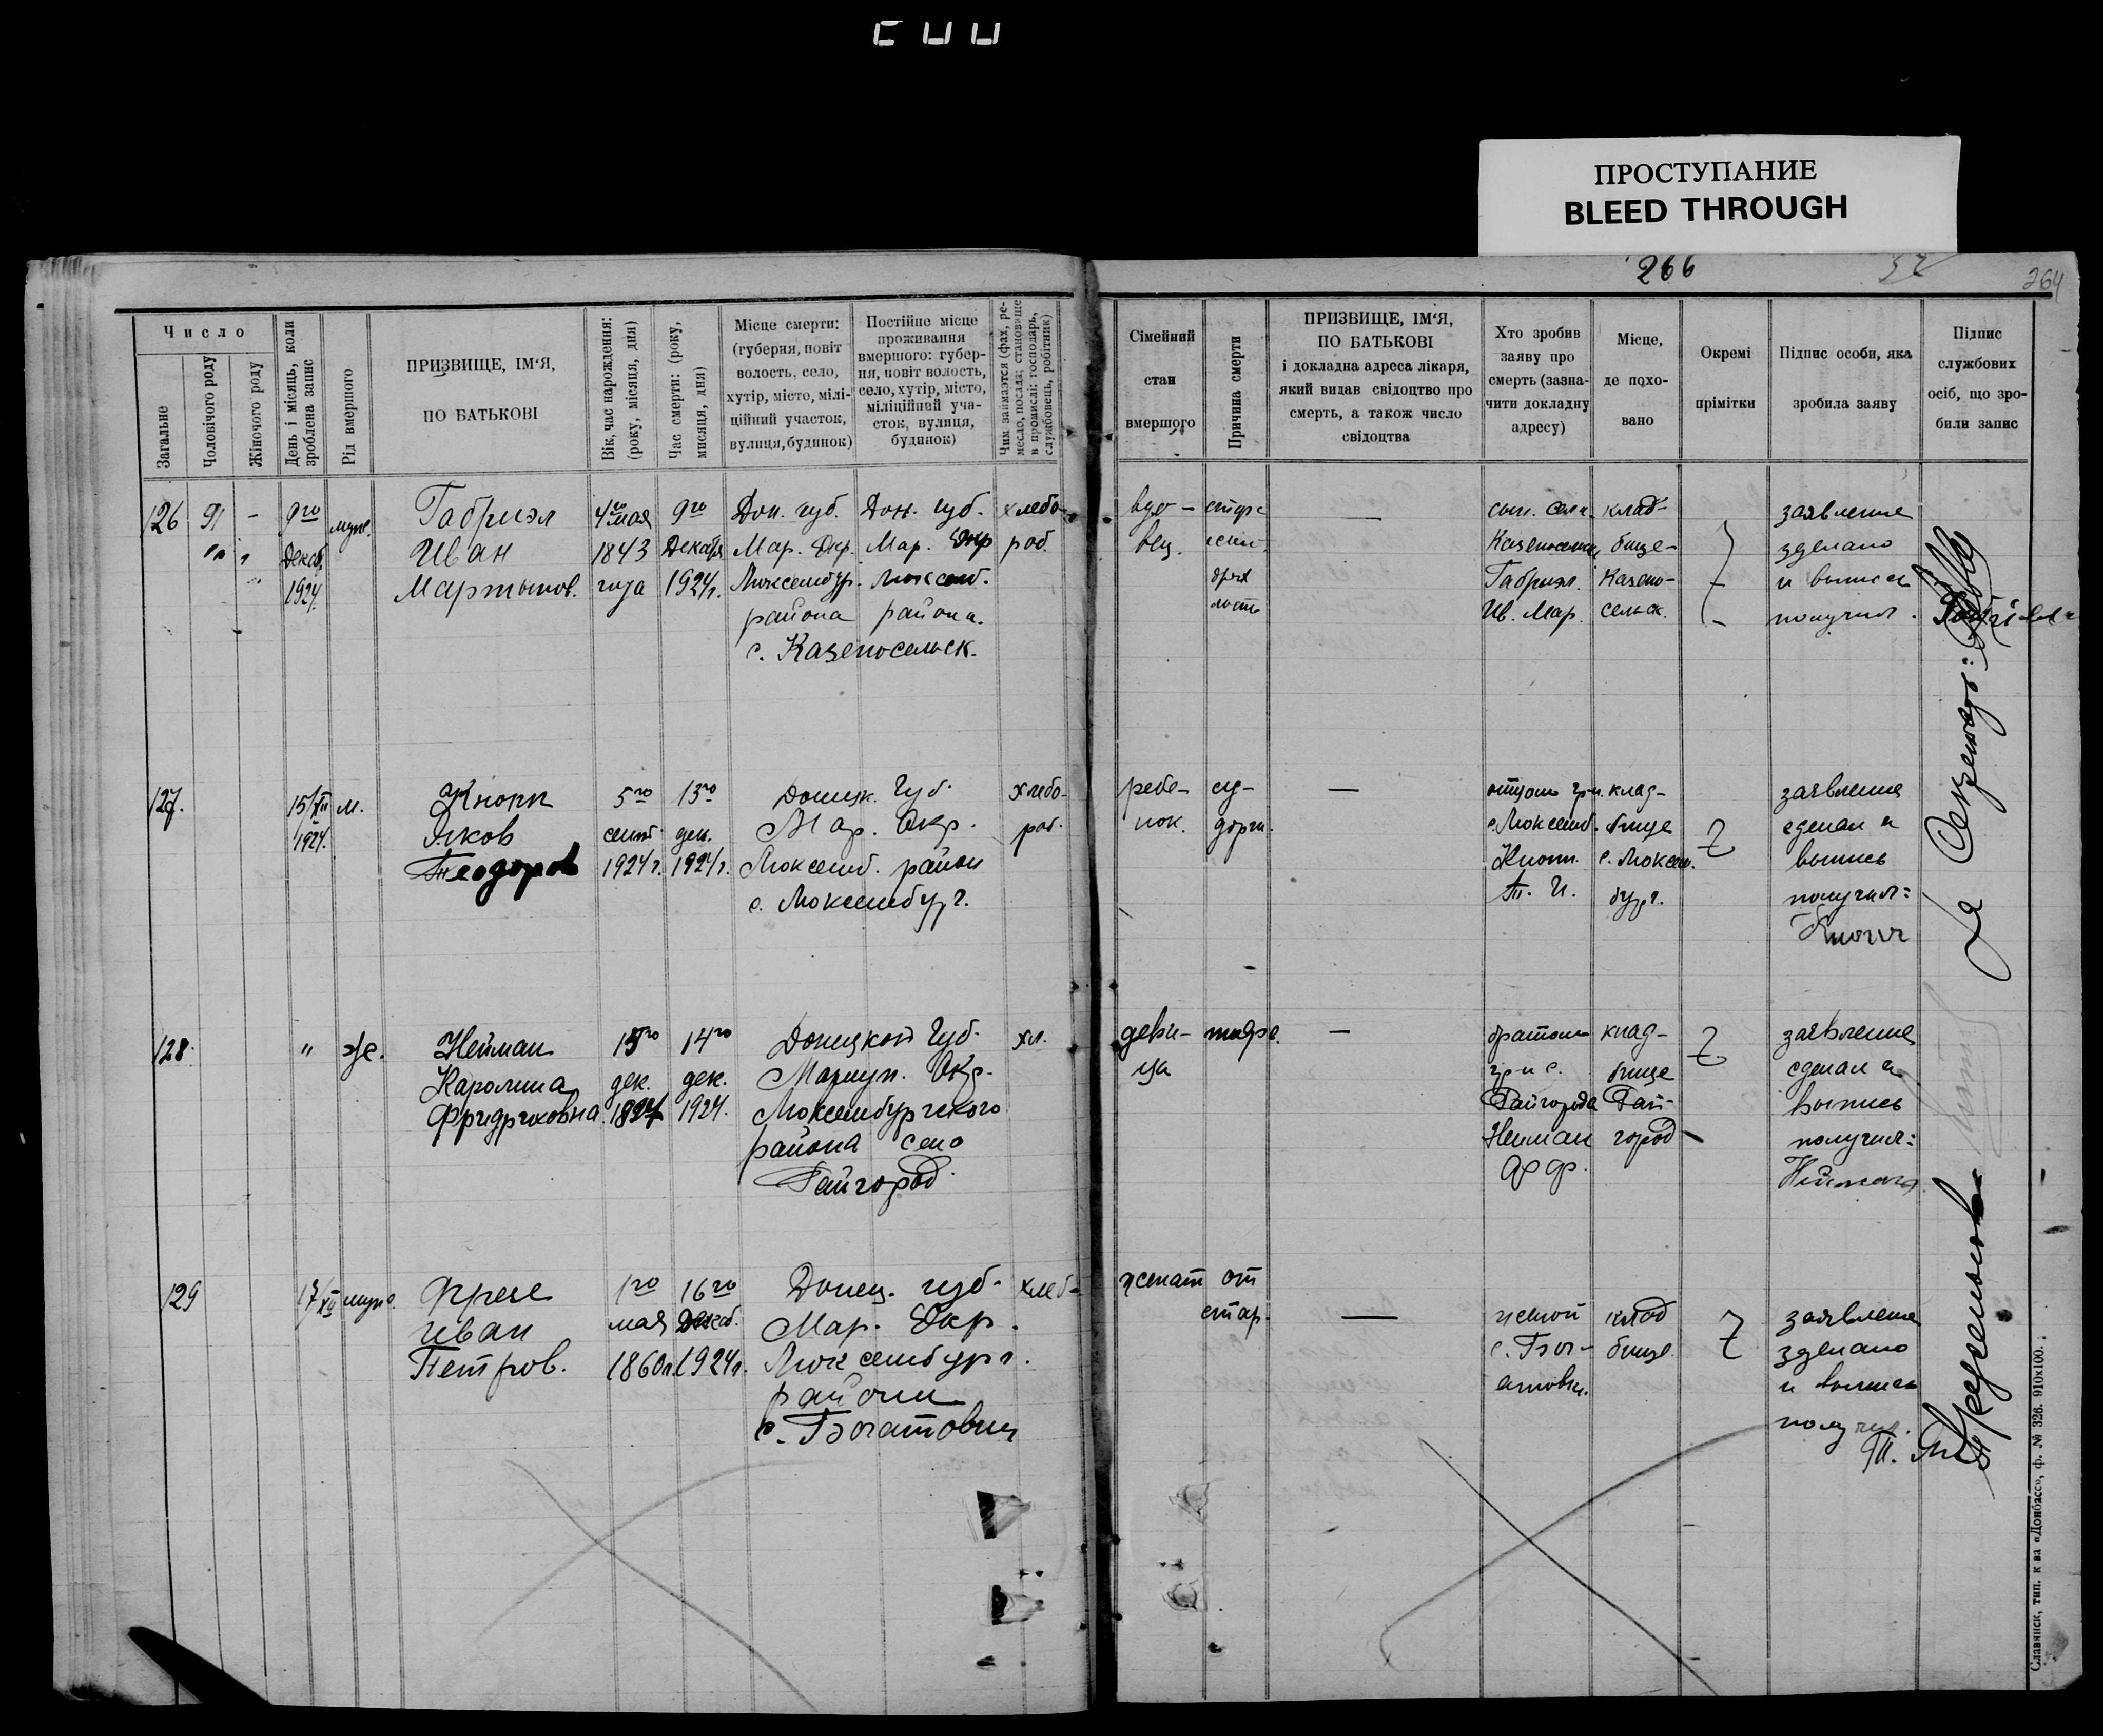 ПРОСТУПАНИЕ
BLEED THROUGH
266
264
Число
Загальне
Чоловічого роду
Жіночого роду
День і місяць, коли
зроблена запис
Рід вмершого
ПРИЗВИЩЕ, ІМ‘Я,
ПО БАТЬКОВІ
Вік, час народження:
(року, місяця, дня)
Час смерти: (року,
мисяця, дня)
Місце смерти:
(губерня, повіт
волость, село,
хутір, місто, мілі-
ційний участок,
вулиця, будинок)
Постійне місце
проживання
вмершого: губер-
ня, повіт волость,
село, хутір, місто,
міліційний уча-
сток, вулиця,
будинок)
Чим займаэтся (фах, ре-
месло, посада; становище
в промислі: господарь,
службовець, робітник)
Сімейний
стан
вмершого
Причина смерти
ПРИЗВИЩЕ, ІМ‘Я,
ПО БАТЬКОВІ
і докладна адреса лікаря,
який видав свідоцтво про
смерть, а також число
свідоцтва
Хто зробив
заяву про
смерть (зазна-
чити докладну
адресу)
Місце,
де похо-
вано
Окремі
прімітки
Підпис особи, яка
зробила заяву
Підпис
службових
осіб, що зро-
били запис
126 91 - 9го
Декаб.
1924
муж.
Габриэл
Иван
Мартынов.
4го мая
1843
года
9го
Декабря
1924г.
Дон. губ. Дон. губ.
Мар. Окр. Мар. Окр
Люксембур. Люксемб.
района района.
с. Казеносельск.
хлебо-
роб.
вдо-
вец.
старч
—
сын. села
Габриэл.
Ив. Мар.
клад-
бище-
Казено-
сельск.
заявление
зделано
и выпись
получил.
127.
15/XII
1924.
м.
Кнопп
Яков
Теодоров
5го
сент.
1924г.
13го
дек.
1924г.
Донецк. Губ.
Мар. Окр.
Люксемб. район
с. Люксембург.
хлебо-
роб.
ребе-
нок.
су-
дорги.
—
отцом гр-н.
с. Люксемб.
Кнопп.
Т. И.
клад-
бище
с. Люксем.
бург.
заявление
сделал и
выпись
получил:
Кнопп
128.
"
же.
Нейман
Каролина
Фридриховна
15го
дек.
14го
дек.
1924.
Донецкой Губ.
Мариуп. Окр.
Люксембургского
района село
Райгород.
хл.
деви-
ца
—
братом
гр-н с.
Райгорода
Нейман
Фр. Фр.
клад-
бище
Рай-
город
заявление
сделал и
выпись
получил:
129
17/XII
муж.
Фрезе
Иван
Петров.
1го
мая
1860г.
16го
Декаб.
1924г.
Донец. губ.
Мар. Окр.
Люксембург.
района
с. Богатовки
хлеб-
женат
от
стар.
—
женой
с. Бог-
атовки.
клад
бище.
заявление
зделано
и выпись
получил.
Славянск, тип. к ва «Донбасс», ф. № 326. 910х100.